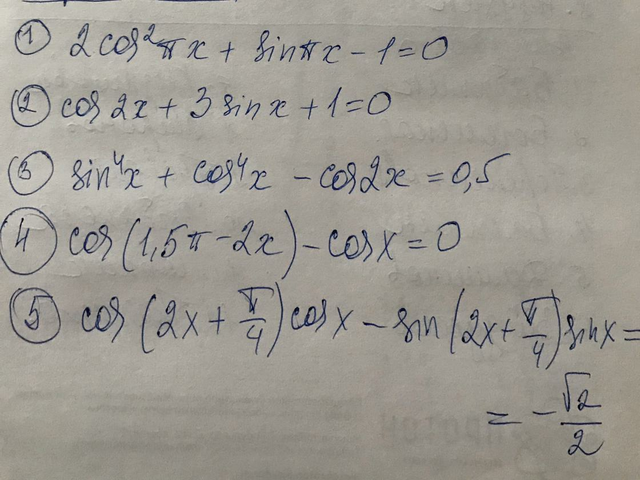 ① 2cos²πx + sinπx - 1 = 0
② cos2x + 3sinx + 1 = 0
③ sin⁴x + cos⁴x - cos2x = 0,5
④ cos(1,5π - 2x) - cosx = 0
⑤ cos(2x + π/4)cosx - sin(2x + π/4)sinx =
= -√2/2